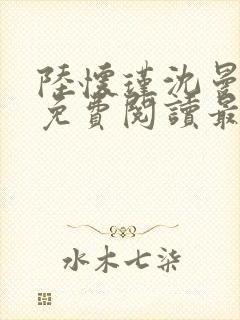 陸懷瑾沈曼
免費閱讀最
水木七柒